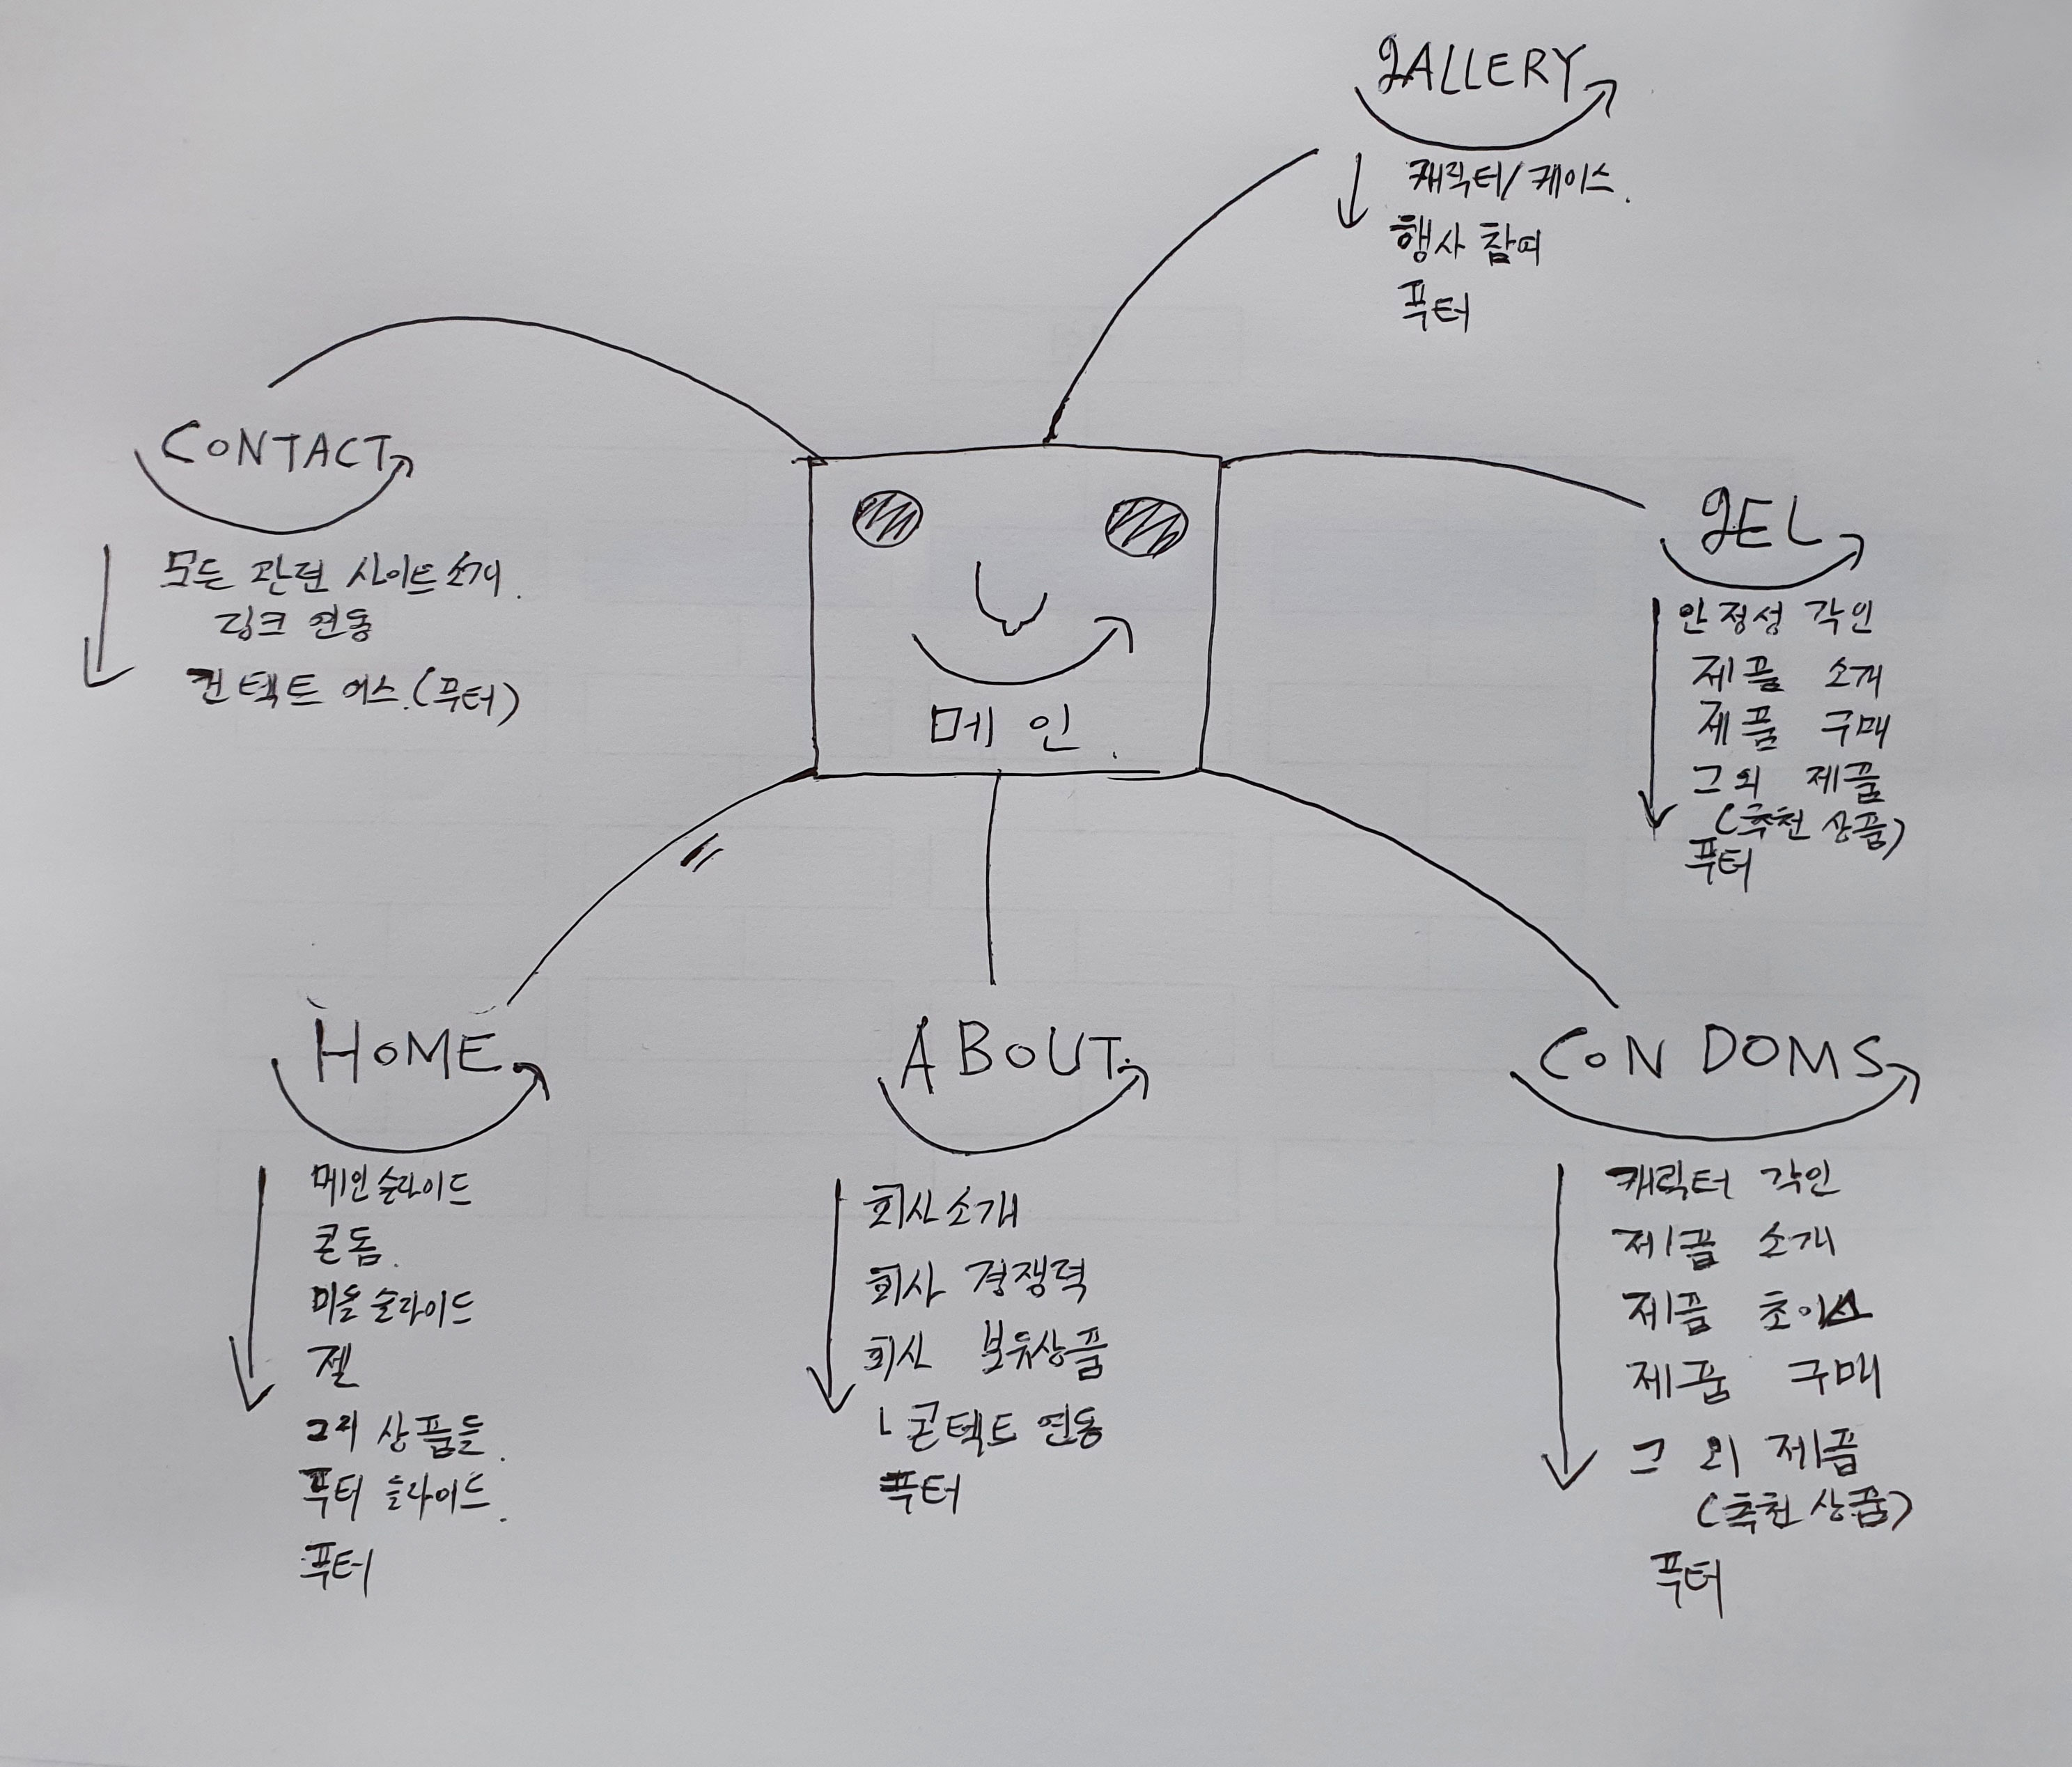 GALLERY
캐릭터/케이스.
행사 참여
푸터
CONTACT
모든 관련 사이트 소개.
링크 연동
컨텍트 어스.(푸터)
메인.
GEL
안정성 각인
제품 소개
제품 구매
그 외 제품
(추천 상품)
푸터
HOME
메인슬라이드
콘돔.
미들 슬라이드
젤
그외 상품들.
푸터 슬라이드.
푸터
ABOUT
회사소개
회사 경쟁력
회사 보유상품
ㄴ콘텍트 연동
푸터
CONDOMS
캐릭터 각인
제품 소개
제품 초이스
제품 구매
그 외 제품
(추천 상품)
푸터